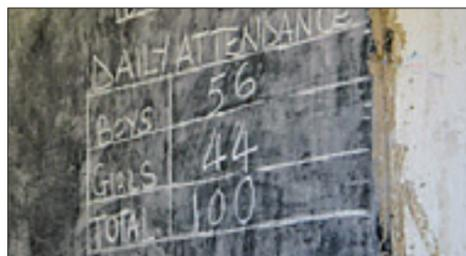 DAILY ATTENDANCE
BOYS 56
GIRLS 44
TOTAL 100